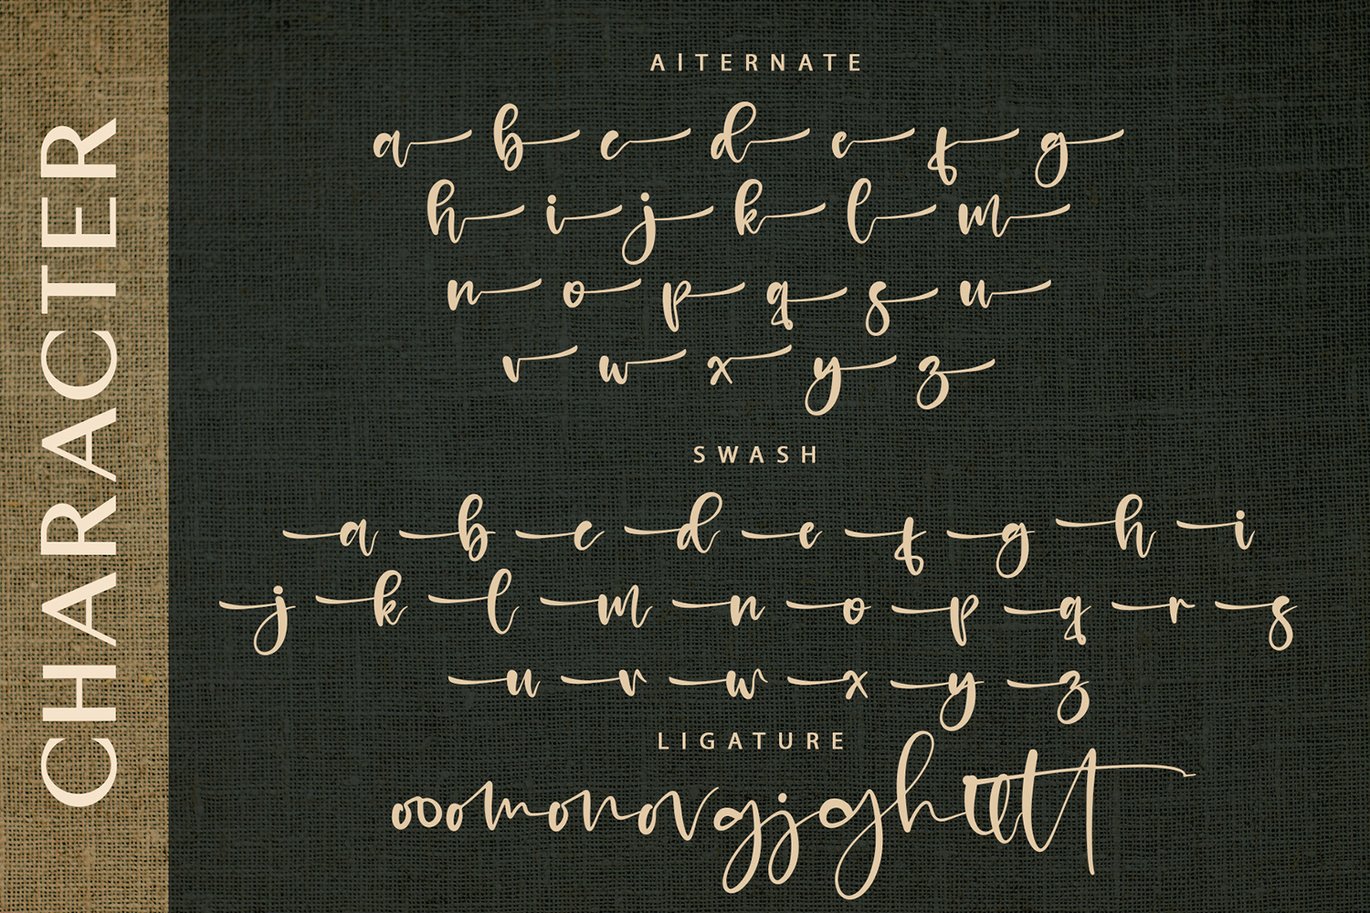 CHARACTER
AlTERNATE
a b c d e f g
h i j k l m
n o p q s u
v w x y z
SWASH
a b c d e f g h i
j k l m n o p q r s
u v w x y z
LIGATURE